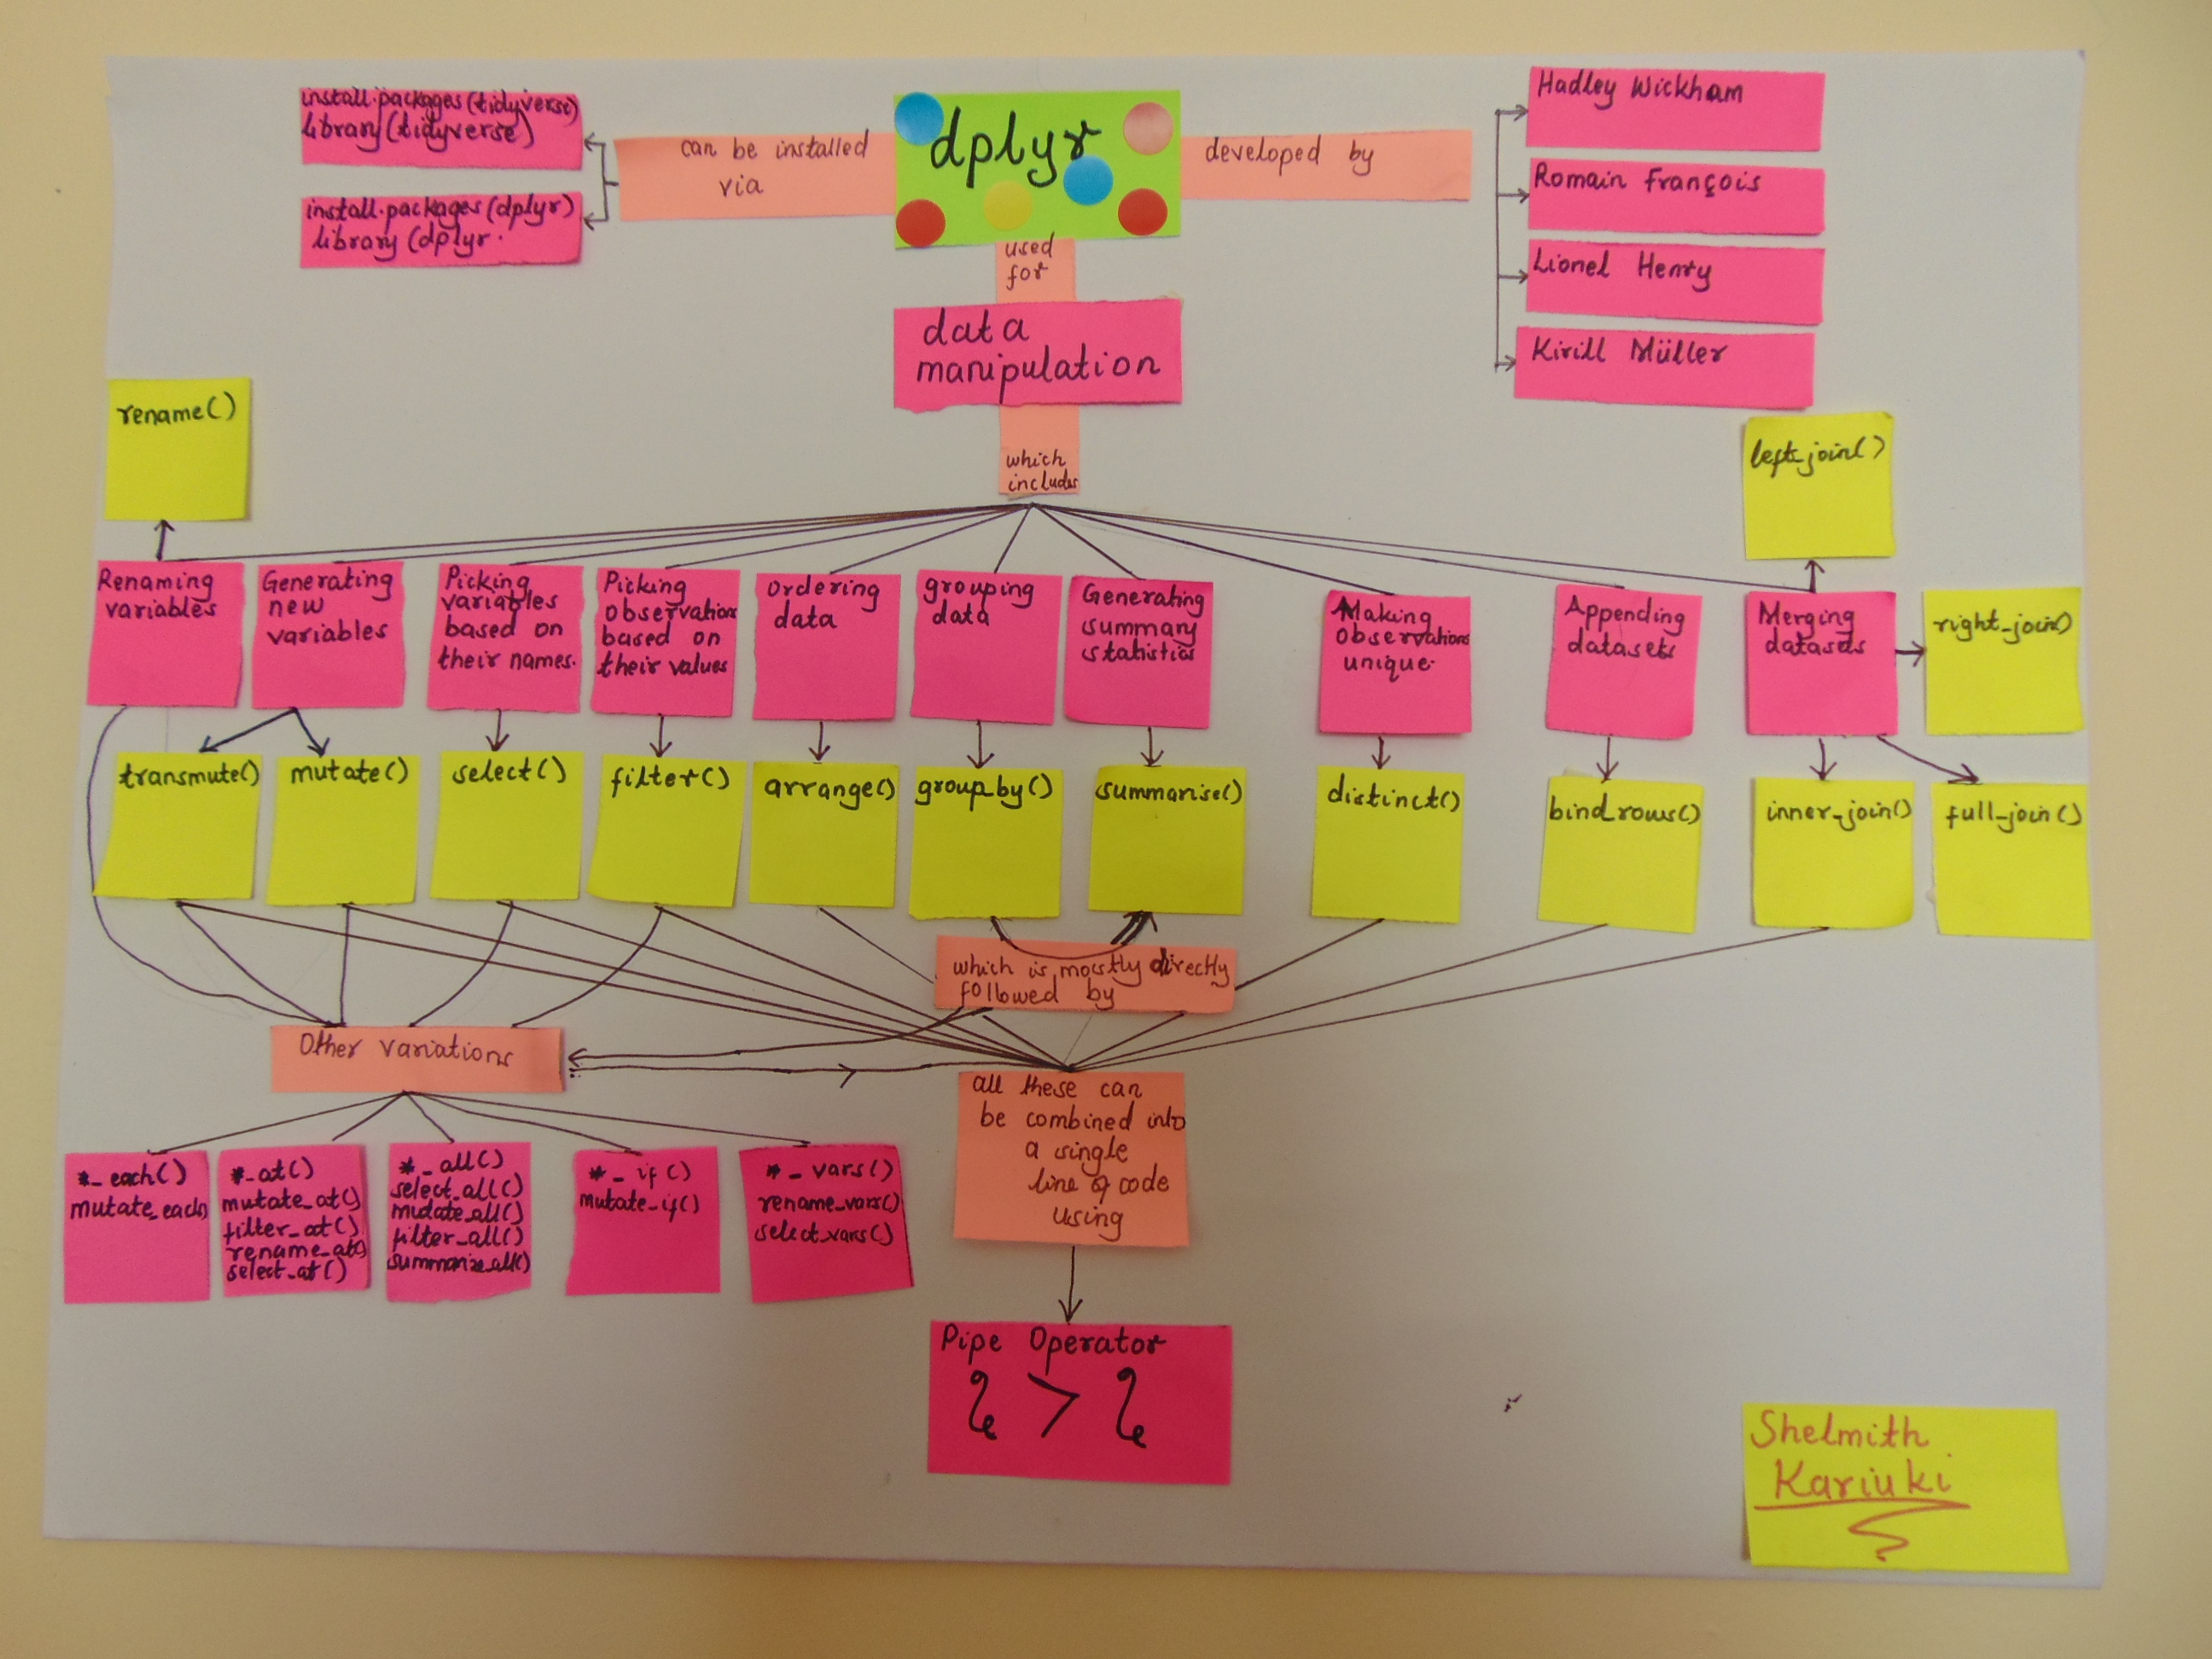 install.packages(tidyverse)
library(tidyverse)
install.packages(dplyr)
library(dplyr.
can be installed
via
dplyr
developed by
Hadley Wickham
Romain François
Lionel Henry
Kirill Müller
used
for
data
manipulation
which
includes
rename()
left_join()
Renaming
variables
Generating
new
variables
Picking
variables
based on
their names.
Picking
observations
based on
their values
Ordering
data
grouping
data
Generating
summary
statistics
Making
observations
unique.
Appending
datasets
Merging
datasets
right_join()
transmute()
mutate()
select()
filter()
arrange()
group_by()
summarise()
distinct()
bind_rows()
inner_join()
full_join()
which is mostly directly
followed by
Other variations
all these can
be combined into
a single
line of code
using
*_each()
mutate_each()
*_at()
mutate_at()
filter_at()
rename_at()
select_at()
*_all()
select_all()
mutate_all()
filter_all()
summarize_all()
*_if()
mutate_if()
*_vars()
rename_vars()
select_vars()
Pipe Operator
%>%
Shelmith
Kariuki